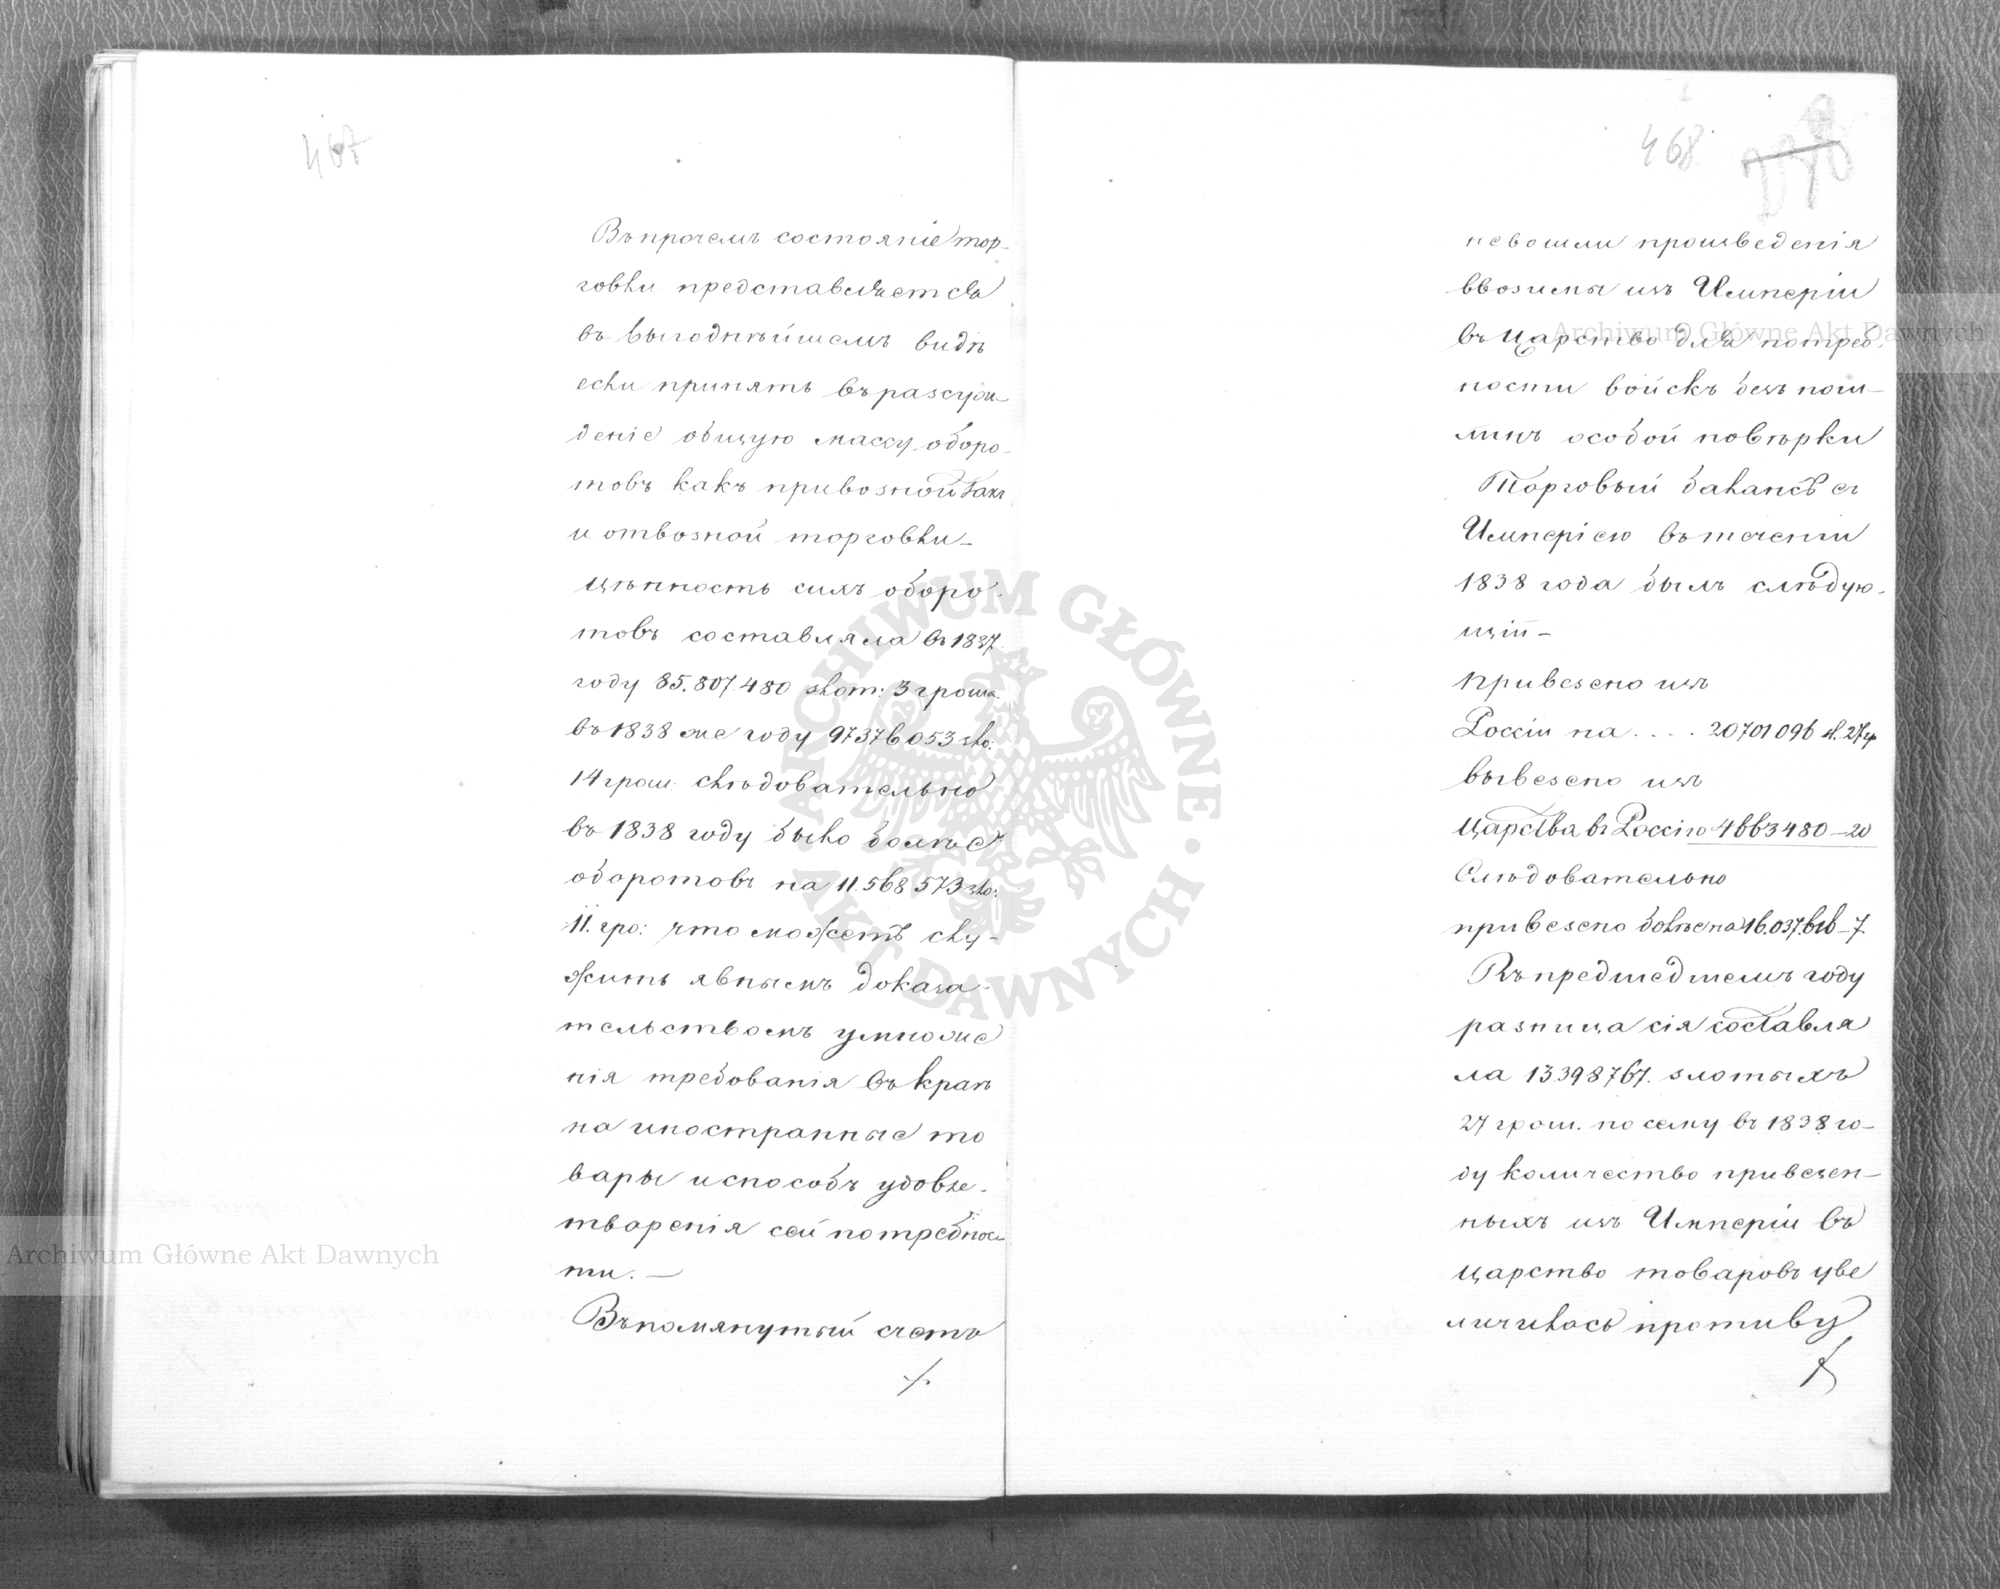 467
Въпрочемъ состояніе тор-
говли представляется
въ выгоднѣйшемъ видѣ
если принять въ разсуж-
деніе общую массу оборо-
товъ какъ привозной такъ
и отвозной торговли -
цѣнность сихъ оборо-
товъ составляла въ 1837
году 85.807.480 злот: 3 гроша.
въ 1838 же году 97376053 зло:
14 грош: слѣдовательно
въ 1838 году было болѣе
оборотовъ на 11.568573 зло:
11. гро: что можетъ слу-
жить явнымъ доказа-
тельствомъ умноже
нія требованія въ краѣ
на иностранные то
вары и способъ удовле-
творенія сей потребнос
ти. —
Въпомянутый счетъ
468
невошли произведенія
ввозимы изъ Имперіи
въ Царство для потреб-
ности войскъ безъ пош-
линъ особой повѣрки
Торговый балансъ съ
Имперіею въ теченіи
1838 года былъ слѣдую-
щій -
привезено изъ
Россіи на . . . . 20701096 зл. 27 гр
вывезено изъ
Царства въ Россію 4663480 - 20
Слѣдовательно
привезено болѣе на 16.037.616 - 7.
Въ предшедшемъ году
разница сія составля
ла 13398767. злотыхъ
27 грош. по сему въ 1838 го-
ду количество привезен-
ныхъ изъ Имперіи въ
царство товаровъ уве
личилось противу
Archiwum Główne Akt Dawnych
Archiwum Główne Akt Dawnych
ARCHIWUM GŁÓWNE · AKT DAWNYCH ·